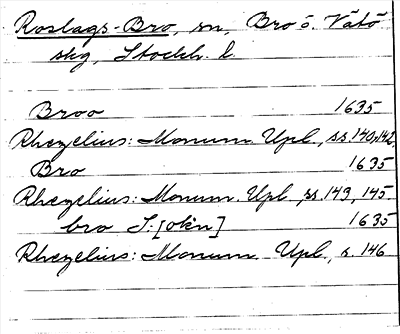 Roslags-Bro, sn, Bro o. Vätö
skg, Stockh. l.
Broo 1635
Rhezelius: Monum. Upl., ss. 140, 142.
Bro 1635
Rhezelius: Monum. Upl., ss. 143, 145
bro S:[okn] 1635
Rhezelius: Monum. Upl., s. 146